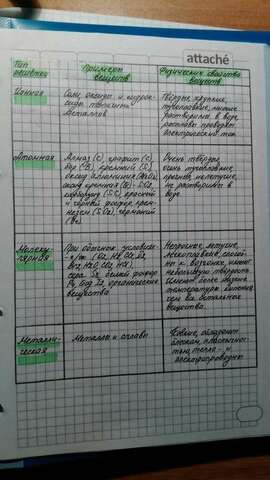 attaché
Тип
решётки
Примеры
веществ
Физические свойства
веществ
Ионная
Соли, оксиды и гидрок-
сиды типичных
металлов
Твёрдые, хрупкие,
тугоплавкие, многие
растворимы в воде
расплавы проводят
электрический ток
Атомная
Алмаз (C), графит (C)
бор (B), кремний (Si),
оксид алюминия (Al2O3),
оксид кремния (IV) - SiO2
карборунд (SiC), красный
и чёрный фосфор, крем-
ний, германий
(Ge).
Очень твёрдые,
очень тугоплавкие,
прочные, нелетучие,
не растворимы в
воде
Молеку-
лярная
При обычных условиях
сера S8, белый фосфор
P4, йод I2, органические
вещества
Непрочные, летучие,
легкоплавкие, способ-
ны к возгонке, имеют
небольшую твёрдость
температуры кипения
чем все остальные
вещества.
Металли-
ческая
Металлы и сплавы
Ковкие, обладают
блеском, пластичнос-
тью, тепло- и
электропроводны